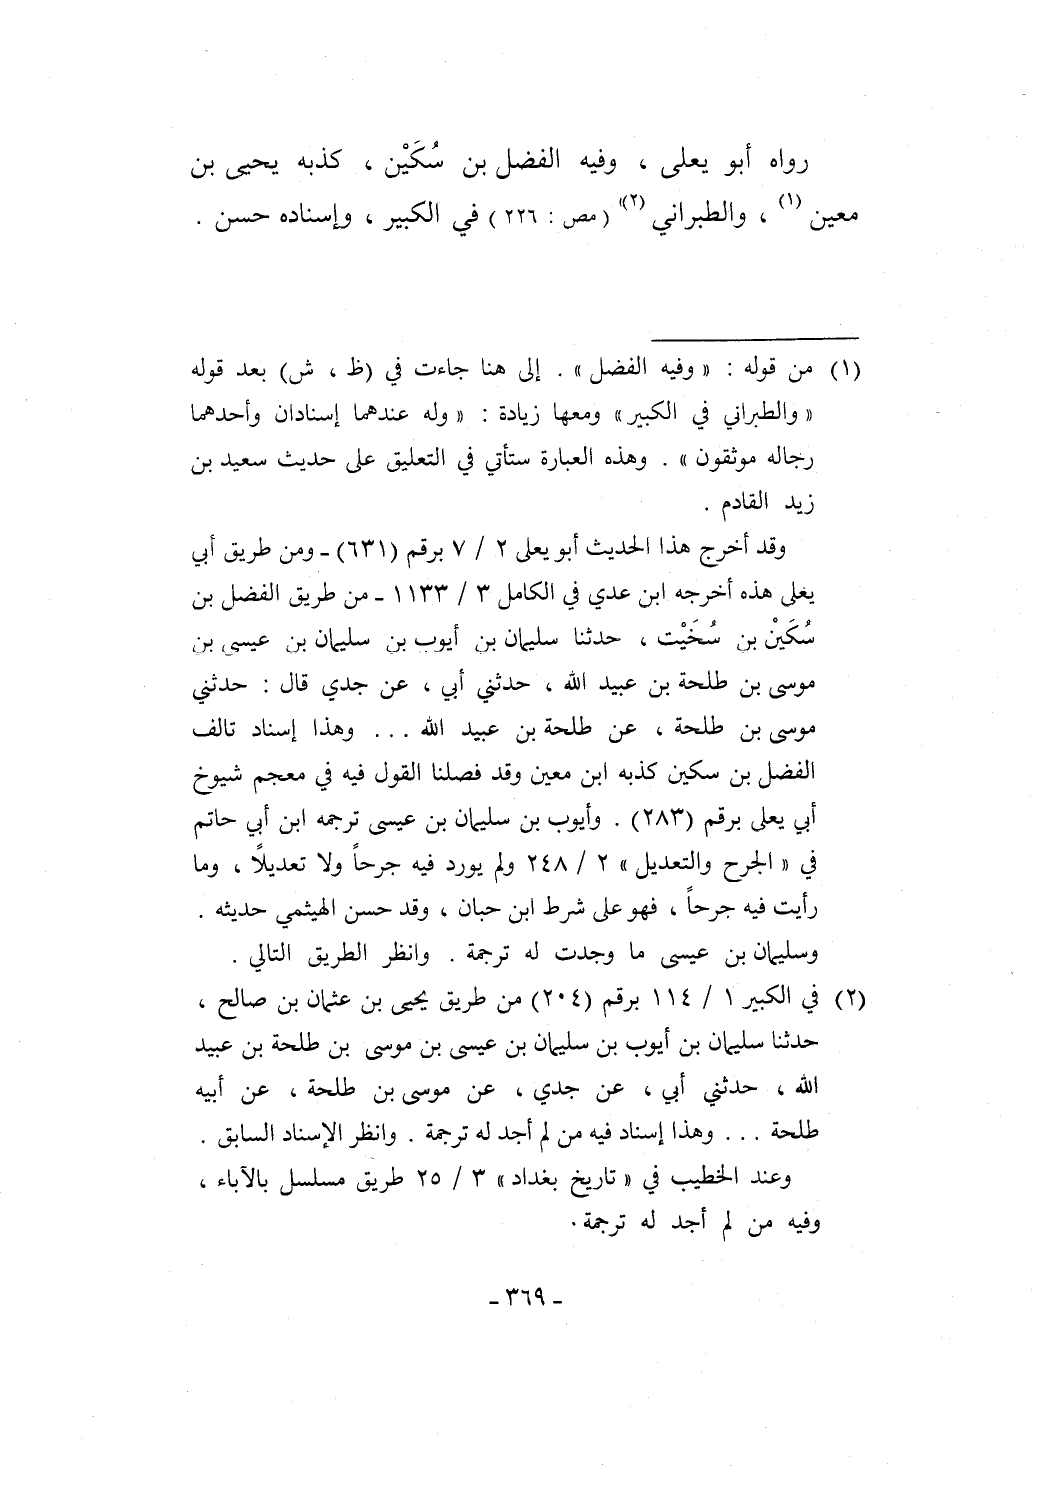 رواه أبو يعلى ، وفيه الفضل بن سُكَيْن ، كذبه يحيى بن
معين (١) ، والطبراني (٢) ( مص : ٢٢٦ ) في الكبير ، وإسناده حسن .
(١) من قوله : « وفيه الفضل » . إلى هنا جاءت في (ظ ، ش) بعد قوله
« والطبراني في الكبير » ومعها زيادة : « وله عندهما إسنادان وأحدهما
رجاله موثقون » . وهذه العبارة ستأتي في التعليق على حديث سعيد بن
زيد القادم .
وقد أخرج هذا الحديث أبو يعلى ٢ / ٧ برقم (٦٣١) ـ ومن طريق أبي
يعلى هذه أخرجه ابن عدي في الكامل ٣ / ١١٣٣ ـ من طريق الفضل بن
سُكَيْن بن سُخَيْت ، حدثنا سليمان بن أيوب بن سليمان بن عيسى بن
موسى بن طلحة بن عبيد الله ، حدثني أبي ، عن جدي قال : حدثني
موسى بن طلحة ، عن طلحة بن عبيد الله ... وهذا إسناد تالف
الفضل بن سكين كذبه ابن معين وقد فصلنا القول فيه في معجم شيوخ
أبي يعلى برقم (٢٨٣) . وأيوب بن سليمان بن عيسى ترجمه ابن أبي حاتم
في « الجرح والتعديل » ٢ / ٢٤٨ ولم يورد فيه جرحاً ولا تعديلاً ، وما
رأيت فيه جرحاً ، فهو على شرط ابن حبان ، وقد حسن الهيثمي حديثه .
وسليمان بن عيسى ما وجدت له ترجمة . وانظر الطريق التالي .
(٢) في الكبير ١ / ١١٤ برقم (٢٠٤) من طريق يحيى بن عثمان بن صالح ،
حدثنا سليمان بن أيوب بن سليمان بن عيسى بن موسى بن طلحة بن عبيد
الله ، حدثني أبي ، عن جدي ، عن موسى بن طلحة ، عن أبيه
طلحة ... وهذا إسناد فيه من لم أجد له ترجمة . وانظر الإسناد السابق .
وعند الخطيب في « تاريخ بغداد » ٣ / ٢٥ طريق مسلسل بالآباء ،
وفيه من لم أجد له ترجمة .
ـ ٣٦٩ ـ